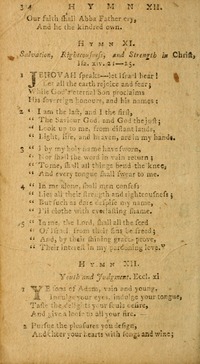 34 HYMN XII.
Our faith shall Abba Father cry,
And he the kindred own.
HYMN XI.
Salvation, Righteousness, and Strength in Christ,
Isa. xlv. 21—25.
1 JEHOVAH speaks—let Israel hear!
Let all the earth rejoice and fear;
While God's eternal Son proclaims
His sovereign honours, and his names;
2 "I am the last, and I the first,
"The Saviour God, and God the just;
"Look up to me, from distant lands;
"Light, life, and heaven, are in my hands.
3 "I by my holy name have sworn,
"Nor shall the word in vain return;
"To me, shall all things bend the knee,
"And every tongue shall swear to me.
4 "In me alone, shall men confess
"Lies all their strength and righteousness;
"But such as dare despise my name,
"I'll clothe with everlasting shame.
5 "In me, the Lord, shall all the seed
"Of Israel from their sins be freed;
"And, by their shining graces, prove,
"Their interest in my pardoning love."
HYMN XII.
Youth and Judgment. Eccl. xi
1 YE sons of Adam, vain and young,
Indulge your eyes, indulge your tongue,
Taste the delights your souls desire,
And give a loose to all your fire.
2 Pursue the pleasures you design,
And cheer your hearts with songs and wine;